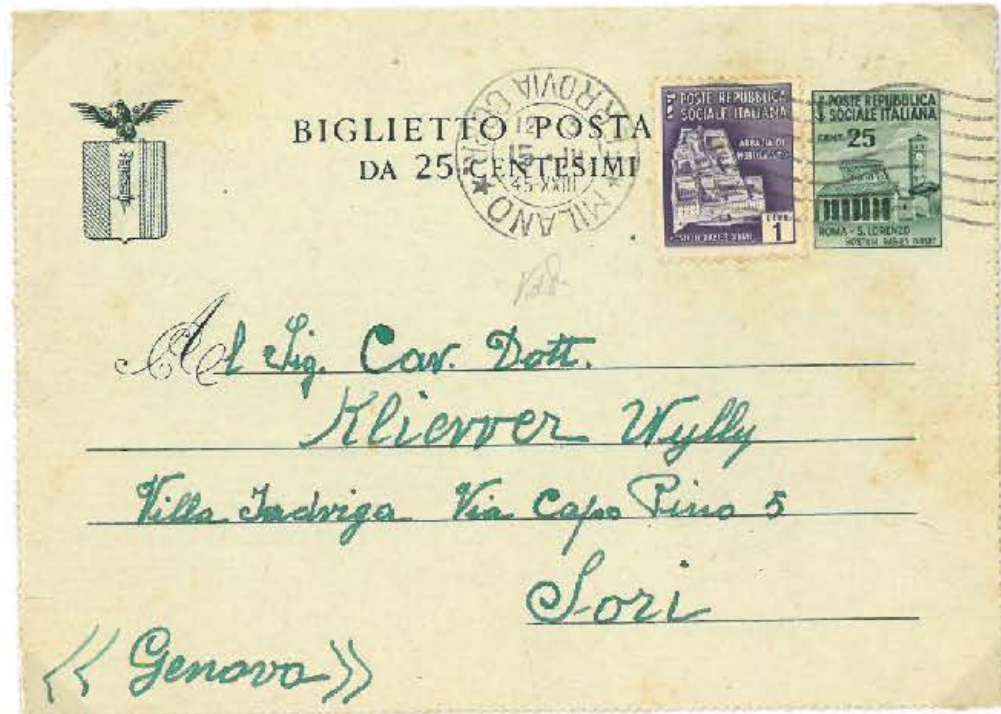 BIGLIETTO POSTA
DA 25 CENTESIMI
MILANO FERROVIA CORR.
12
45-XXIII
POSTE REPUBBLICA
SOCIALE ITALIANA
ABBAZIA DI
MONTECASSINO
LIRE
1
POSTE REPUBBLICA
SOCIALE ITALIANA
CENT. 25
ROMA - S. LORENZO
HOSTIUM RABIES DIRUIT
Al Sig. Cav. Dott.
Kliewer Wylly
Villa Jadviga Via Capo Pino 5
Sori
<< Genova >>